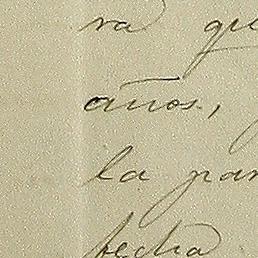 ra que
años,
la par
fecha